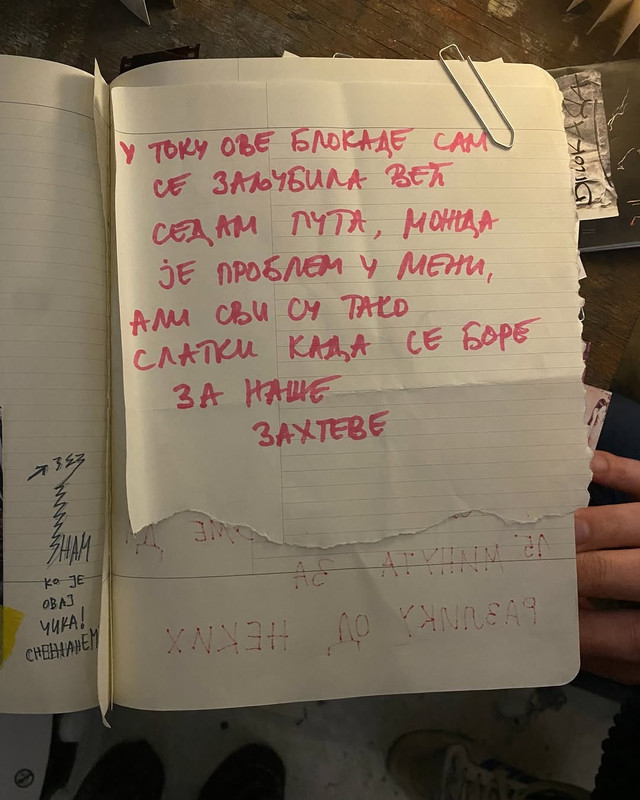 У ТОКУ ОВЕ БЛОКАДЕ САМ
СЕ ЗАЉУБИЛА ВЕЋ
СЕДАМ ПУТА, МОЖДА
ЈЕ ПРОБЛЕМ У МЕНИ,
АЛИ СВИ СУ ТАКО
СЛАТКИ КАДА СЕ БОРЕ
ЗА НАШЕ
ЗАХТЕВЕ
НАМ
КО ЈЕ
ОВАЈ
ЧИКА!
МИНУТА ЗА
РАЗЛИКУ ОД НЕКИХ